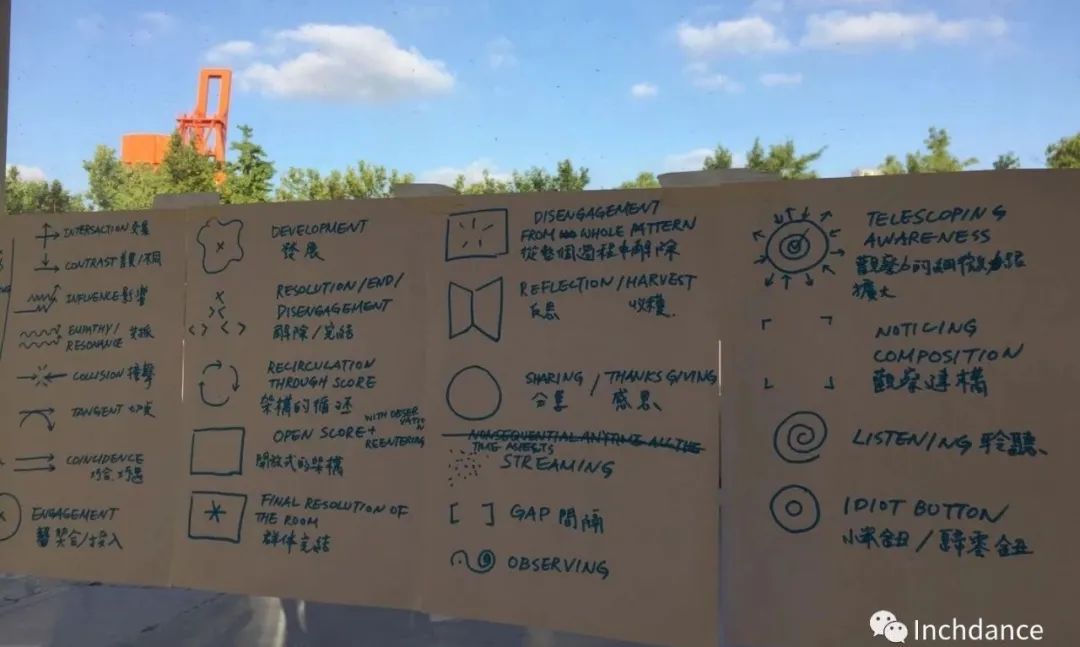 INTERSACTION 交集
CONTRAST 異/不同
INFLUENCE 影響
EMPATHY/
RESONANCE
COLLISION 撞擊
TANGENT 切点
COINCIDENCE
巧合 巧遇
ENGAGEMENT
契合/投入
DEVELOPMENT
發展
RESOLUTION/END/
DISENGAGEMENT
解除/完結
RECIRCULATION
THROUGH SCORE
架構的循还
OPEN SCORE + WITH OBSERVATION
REENTERING
開放式的架構
FINAL RESOLUTION OF
THE ROOM
群体完結
DISENGAGEMENT
FROM WHOLE PATTERN
從整個過程中解除
REFLECTION/HARVEST
反思 收穫
SHARING / THANKSGIVING
分享 感恩
NONSEQUENTIAL ANYTIME ALL THE
TIME
STREAMING
GAP 間隔
OBSERVING
TELESCOPING
AWARENESS
觀察力的細微
擴大
NOTICING
COMPOSITION
觀察建構
LISTENING 聆聽
IDIOT BUTTON
小米鈕/歸零鈕
Inchdance